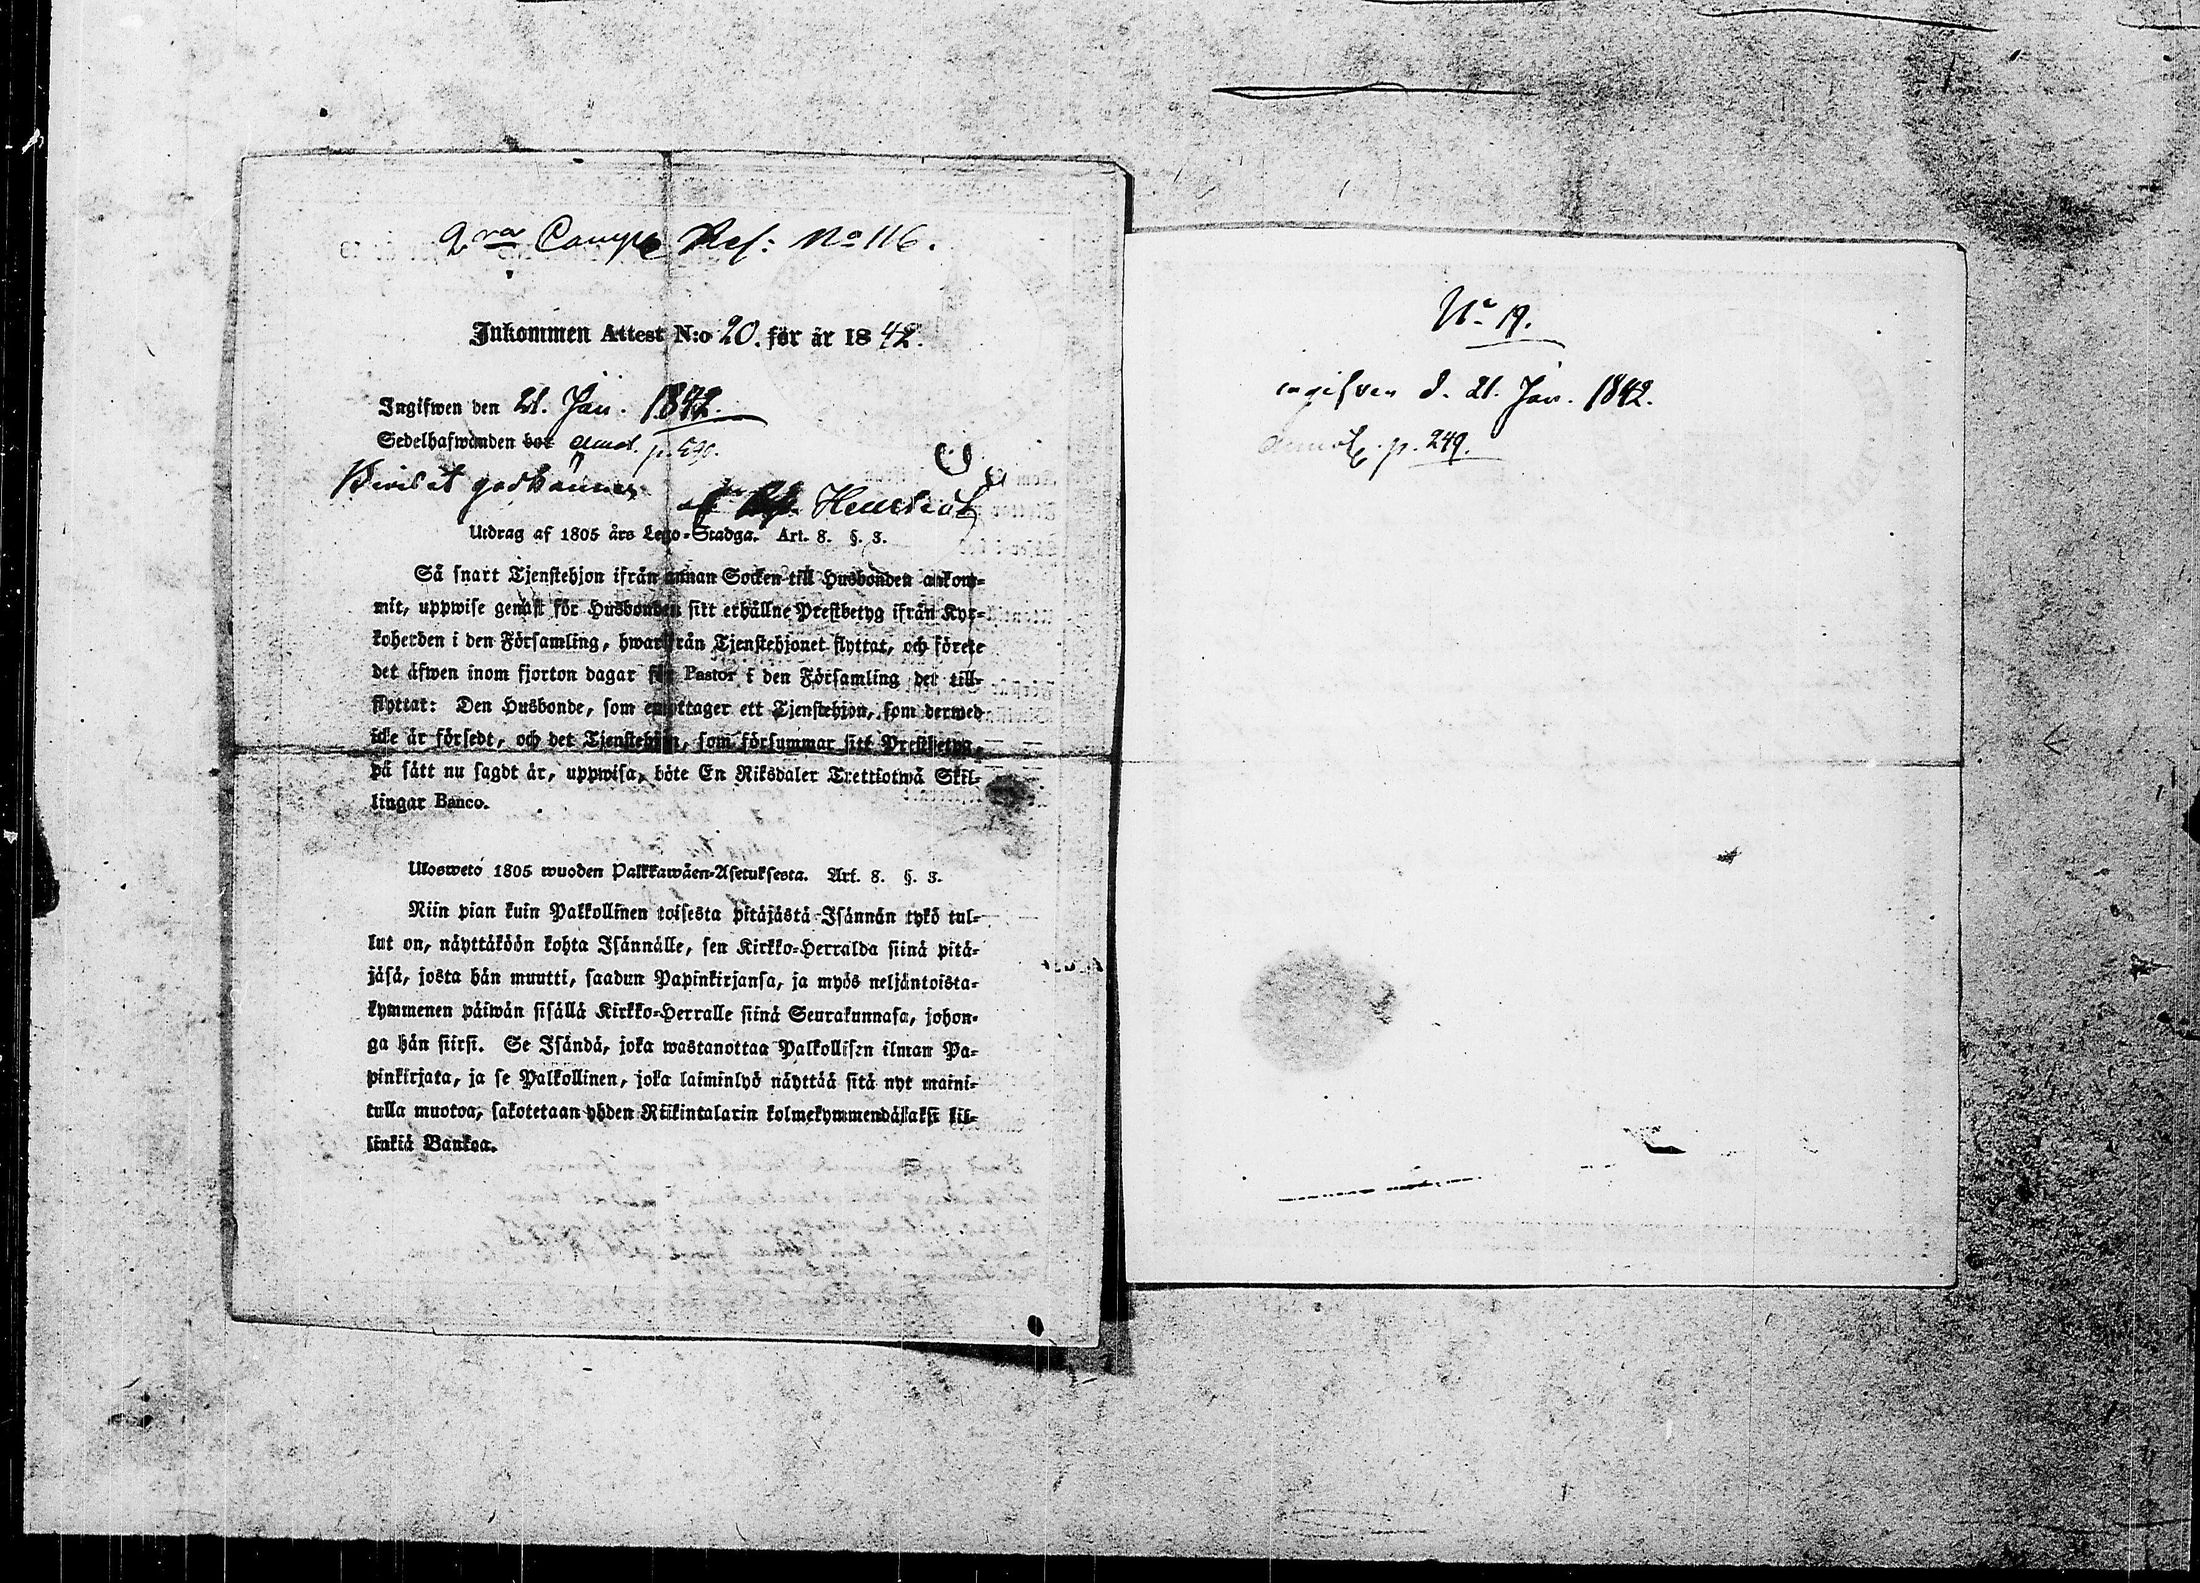 2ra Comp Ref: No 116.
Inkommen Attest N:o 20. för år 1842.
Ingifwen den 21. Jan. 1842.
Sedelhafwanden bor annot. p. 590.
godkännes af Henriet
Utdrag af 1805 års Lego-Stadga. Art. 8. §. 3.
Så snart Tjenstehjon ifrån annan Socken till Husbonden ankom-
mit, uppwise genast för Husbonden sitt erhållne Prestbetyg ifrån Kyr-
koherden i den Församling, hwarifrån Tjenstehjonet flyttat, och förete
det äfwen inom fjorton dagar för Pastor i den Församling det till-
flyttat: Den Husbonde, som emottager ett Tjenstehjon, som dermed
icke är försedt, och det Tjenstehjon, som försummar sitt Prestbetyg,
på sätt nu sagdt är, uppwisa, böte En Riksdaler Trettiotwå Skil-
lingar Banco.
Uloswetö 1805 wuoden Palkkawäen-Asetuksesta. Art. 8. §. 3.
Niin pian kuin Palkollinen toisesta pitäjästä Isännän tykö tul-
lut on, näyttäköön kohta Isännälle, sen Kirkko-Herralda siinä pitä-
jäsä, josta hän muutti, saadun Papinkirjansa, ja myös neljäntoista-
kymmenen päiwän sisällä Kirkko-Herralle siinä Seurakunnasa, johon-
ga hän siirsi. Se Isändä, joka wastanottaa Palkollisen ilman Pa-
pinkirjata, ja se Palkollinen, joka laiminlyö näyttää sitä nyt maini-
tulla muotoa, sakotetaan yhden Riikintalarin kolmekymmendäkaksi kil-
linkiä Bankoa.
No 19.
ingifven d. 21. Jan. 1842.
annot. p. 249.